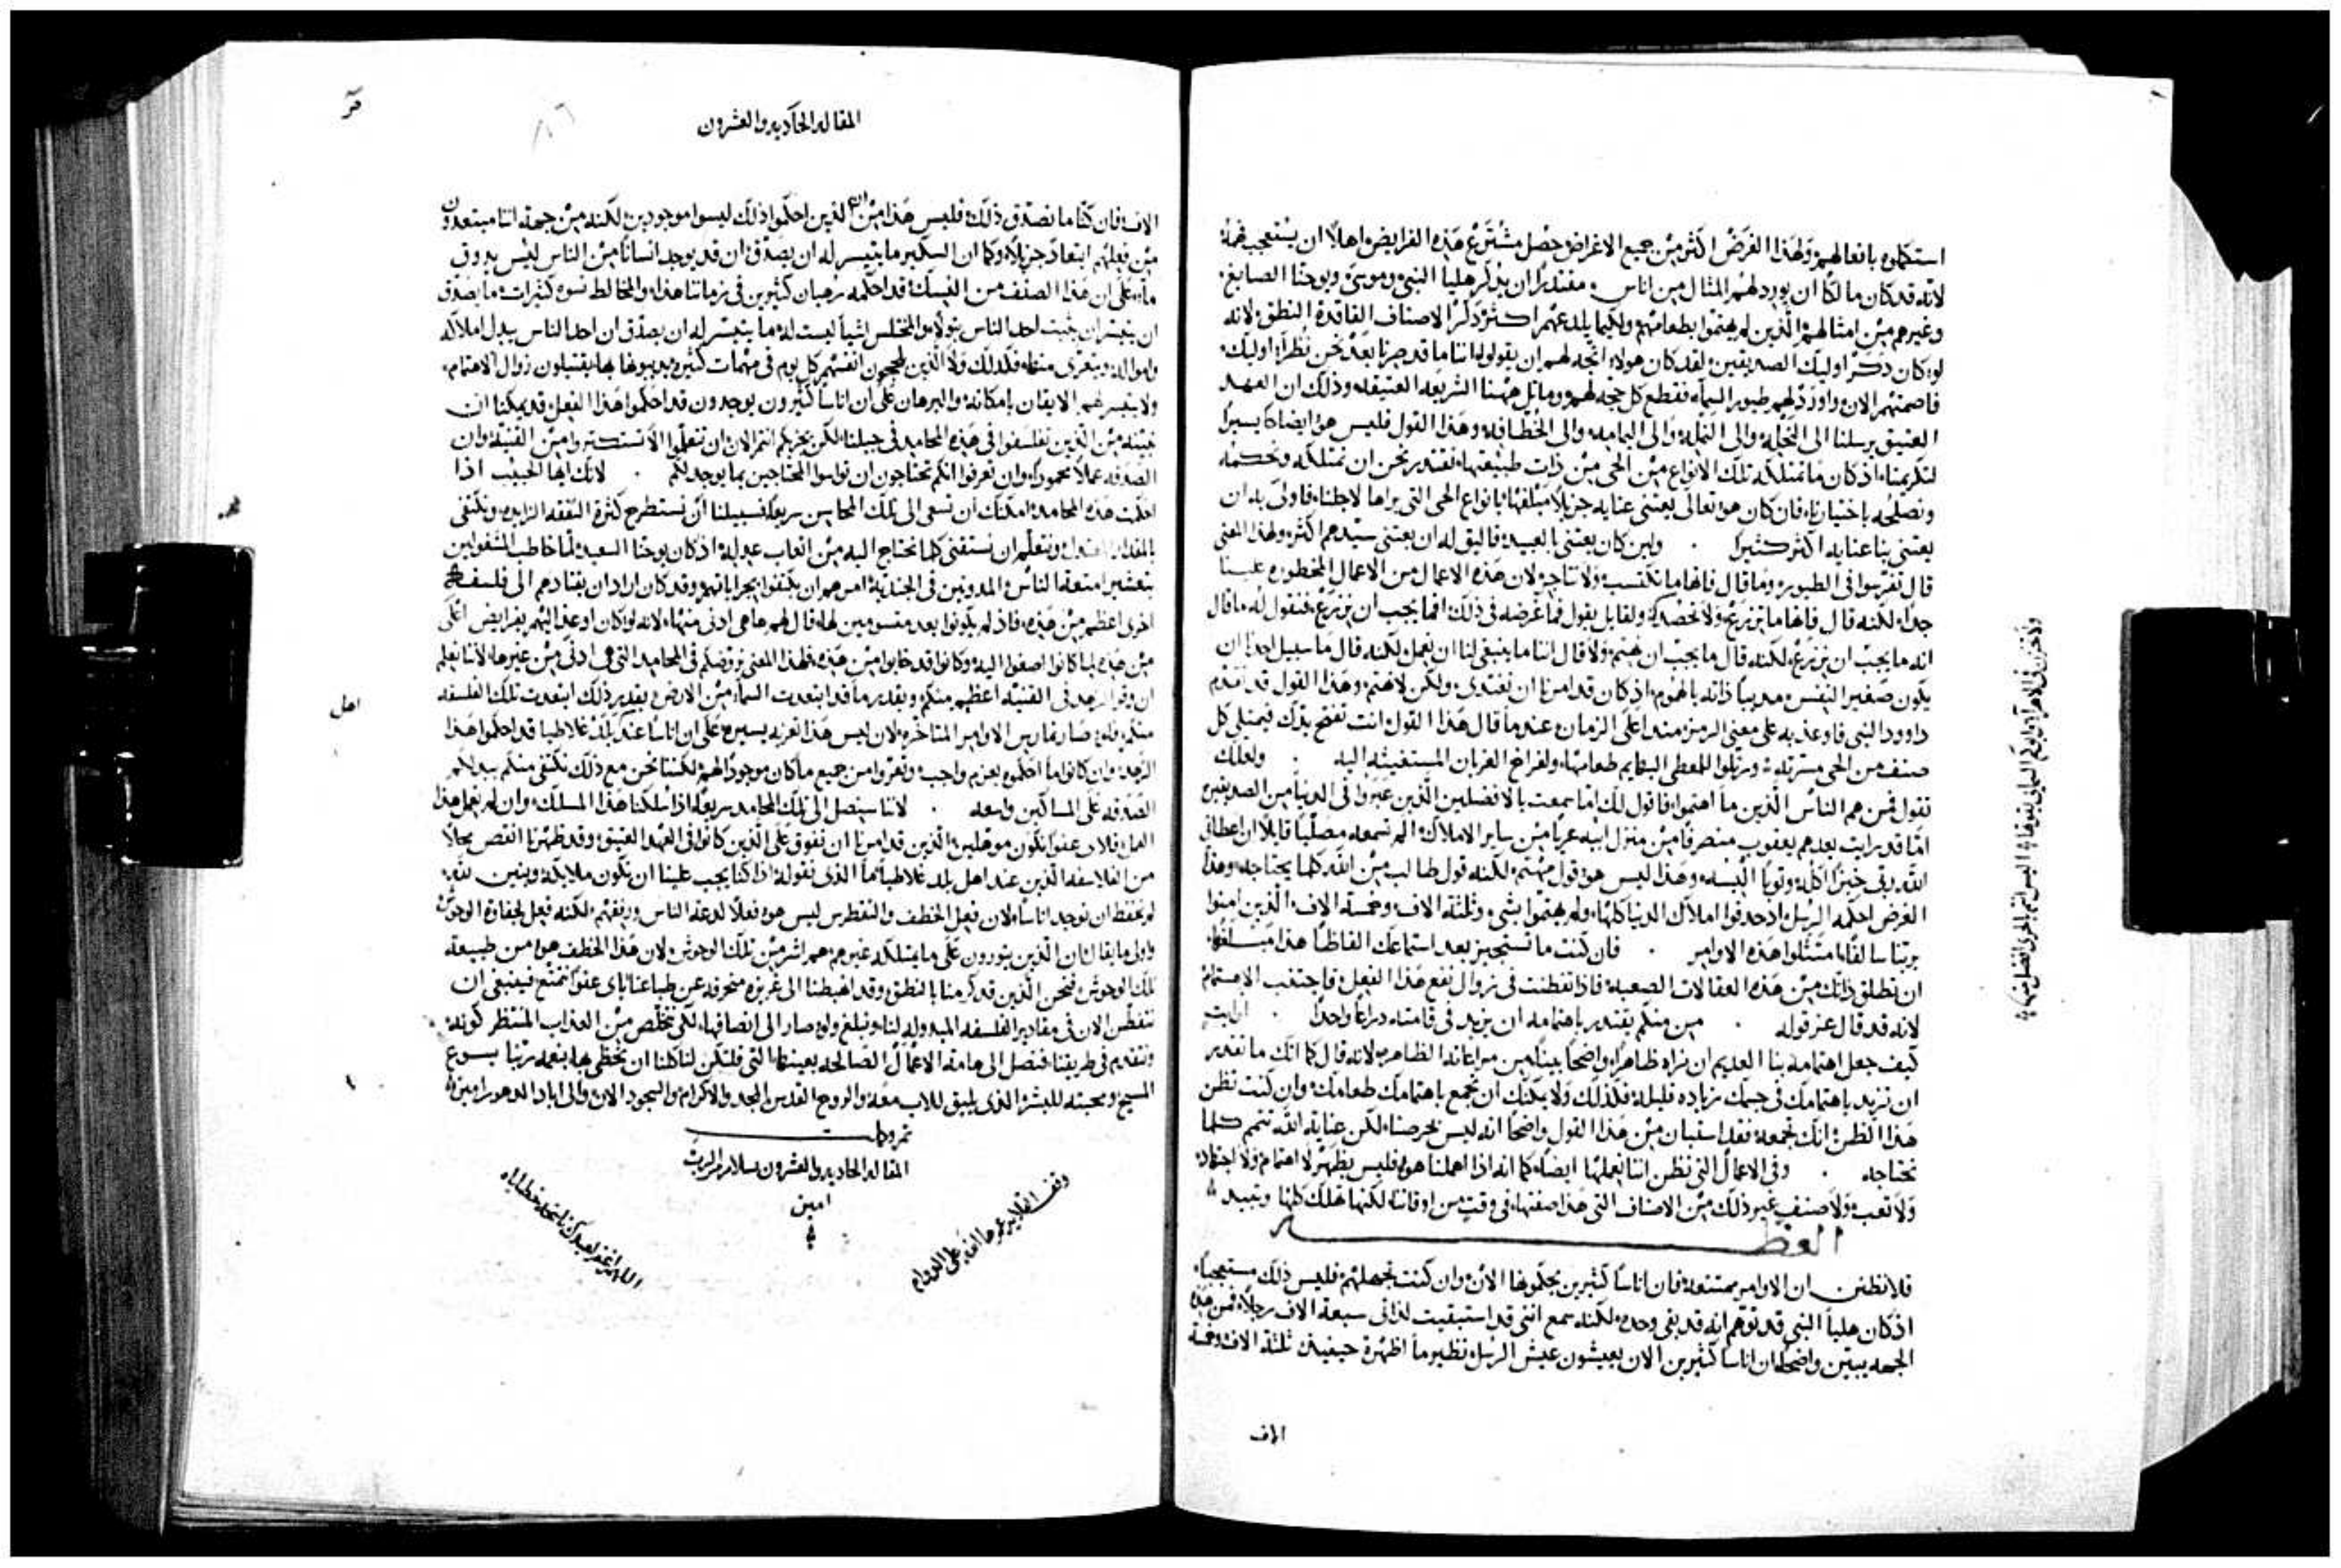 استكملوه بافعالهم ولهذا الغرض اكثر من جميع الاغراض حصل مشترع هذه الفرايض اهلا ان يستعجب فهمه
لانه قد كان مالكا ان يورد لهم المثال من اناس مقتدرا ان يذكر هليا النبي وموسى ويوحنا الصابغ
وغيرهم من امثالهم الذين لم يهتموا بطعامهم ولكيما يلدعهم اكثر ذكر الاصناف الفاقدة النطق لانه
لو كان ذكر اوليك الصديقين لقد كان هولاء اتجه لهم ان يقولوا اننا ما قد صرنا بعد نحن نظراء اوليك
فاصمتهم الان واورد لهم طيور السماء فقطع كل حجه لهم وماثل ههنا الشريعه العتيقه وذلك ان العهد
العتيق يرسلنا الى النحلة والى النملة والى اليمامه والى الخطافه وهذا القول فليس هو ايضا يسيرا
لتكريمنا اذ كان ما تمتلكه تلك الانواع من الحى من ذات طبيعتها نقتدر نحن ان نمتلكه ونحكمه
ونصلحه باختيارنا فان كان هو تعالى يعتنى عنايه جزيلا مبلغها بانواع الحى التى براها لاجلنا فاولى به ان
يعتنى بنا عنايه اكثر كثيرا . ولين كان يعتنى بالعبيد فاليق له ان يعتنى بسيدهم اكثر ولهذا المعنى
قال تفرسوا فى الطيور وما قال فانها ما تكتسب ولا تتاجر لان هذه الاعمال من الاعمال المحظوره علينا
جدا لكنه قال فانها ما تزرع ولا تحصد ولقايل يقول فما غرضه فى ذلك افما يجب ان نزرع فنقول له ما قال
انه ما يجب ان نزرع لكنه قال ما يجب ان نهتم ولا قال اننا ما ينبغى لنا ان نعمل لكنه قال ما سبيل احدا ان
يكون صغير النفس مذيبا ذاته بالهموم اذ كان قد امرنا ان نغتدى ولكن لا نهتم وهذا القول قد تقدم
داوود النبى فاوعز به على معنى الرمز منذ اعلى الزمان عندما قال هذا القول انت تفتح يدك فيمتلى كل
صنف من الحى مسرته ورتلوا للمعطى البهايم طعامها ولفراخ الغربان المستغيثه اليه . ولعلك
تقول فمن هم الناس الذين ما اهتموا فاقول لك اما سمعت بالافضلين الذين عبروا فى الدنيا من الصديقين
اما قد رايت بعدهم يعقوب منصرفا من منزل ابيه عريا من ساير الاملاك الم تسمعه مصليا قايلا ان اعطانى
الله ربى خبزا اكله وثوبا البسه وهذا ليس هو قول مهتم لكنه قول طالب من الله كلما يحتاجه وهذا
الغرض احكمه الرسل اذ حذفوا املاك الدنيا كلها ولم يهتموا بشى وثلثة الاف وخمسة الاف الذين امنوا
بربنا سالفا امتثلوا هذه الاوامر . فان كنت ما تستجيز بعد استماعك الفاظا هذا مبلغها
ان تطلق ذاتك من هذه العقالات الصعبه فاذا تفطنت فى زوال نفع هذا الفعل فاجتنب الاهتمام
لانه قد قال عز قوله . من منكم يقتدر باهتمامه ان يزيد فى قامته ذراعا واحدا . ارايت
كيف جعل اهتمامه بنا العديم ان نراه ظاهرا واضحا بينا من مراعاته الظاهره لانه قال كما انك ما تقدر
ان تزيد باهتمامك فى جسمك زياده قليله فكذلك ولا يمكنك ان تجمع باهتمامك طعامك وان كنت تظن
هذا الظن انك تجمعه فقد استبان من هذا القول واضحا انه ليس بحرصنا لكن عناية الله تتمم كلما
نحتاجه . وفى الاعمال التى نظن اننا نعملها ايضا كما انه اذا اهملنا هو فليس يظهر لا اهتمام ولا اجتهاد
ولا تعب ولا صنف غير ذلك من الاصناف التى هذا صفتها فى وقت من اوقاتنا لكنها تهلك كلها وتبيد
العظه
فلا تظنن ان الاوامر ممتنعة فان اناسا كثيرين يحكمونها الان وان كنت تجهلهم فليس ذلك مستعجبا
اذ كان هليا النبى قد توهم انه قد بقى وحده لكنه سمع اننى قد استبقيت لذاتى سبعة الاف رجلا فمن هذه
الجهه يبين واضحا ان اناسا كثيرين الان يعيشون عيش الرسل نظير ما اظهره حينيذ ثلثة الاف وخمسة
الاف
المقاله الحاديه والعشرون
الاف فان كنا ما نصدق ذلك فليس هذا من ان الذين احكموا ذلك ليسوا موجودين لكنه من جهة اننا مبتعدون
من فعلهم ابتعادا جزيلا وكما ان السكير ما يتيسر له ان يصدق ان قد يوجد انسانا من الناس ليس يذوق
ماء على ان هذا الصنف من النسك قد احكمه رهبان كثيرين فى زماننا هذا والمخالط نسوه كثيرات ما يصدق
ان يتيسر ان يثبت احد الناس بتولا والمختلس اشيا ليست له ما يتيسر له ان يصدق ان احد الناس يبذل املاكه
وامواله ويتعرى منها فكذلك ولا الذين يلحجون انفسهم كل يوم فى مهمات كثيره يقتبلون زوال الاهتمام
ولا يتيسر لهم الايقان بامكانه والبرهان على ان اناسا كثيرون يوجدون قد احكموا هذا الفعل قد يمكننا ان
نثبته من الذين تفلسفوا فى هذه المحامد فى جيلنا لكن يجزيكم انتم الان ان تتعلموا الا تستكثروا من القنيه وان
الصدقه عملا محمودا وان تعرفوا انكم تحتاجون ان تواسوا المحتاجين بما يوجد لكم . لانك ايها الحبيب اذا
احكمت هذه المحامد امكنك ان تسعى الى تلك المحاسن سريعا فسبيلنا ان نستطرح كثرة النفقه الزايده ونكتفى
بالمقدار المعتدل ونتعلم ان نستقنى كلما نحتاج اليه من اتعاب عدله اذ كان يوحنا السعيد لما خاطب المشغولين
بتعشير امتعة الناس المدونين فى الجنديه امرهم ان يكتفوا بجراياتهم وقد كان اراد ان يقتادهم الى فلسفه
اخرى اعظم من هذه فاذ لم يكونوا بعد متسومين لها قال لهم ما هى ادنى منها لانه لو كان اوعز اليهم بفرايض اعلى
من هذه لما كانوا اصغوا اليه وكانوا قد خابوا من هذه فلهذا المعنى نروضكم فى المحامد التى هى ادنى من غيرها لاننا نعلم
ان وقر الزهد فى القنيه اعظم منكم وبقدر ما قد ابتعدت السماء من الارض بقدر ذلك ابتعدت تلك الفلسفه
الزهد وان كانوا ما احكموه بعزم واجب وتعروا من جميع ما كان موجودا لهم لكننا نحن مع ذلك نكتفى منكم ببذلكم
الصدقه على المساكين واسعه . لاننا سنصل الى تلك المحامد سريعا اذا سلكنا هذا المسلك وان لم نعمل هذا
العمل فلاى عفو نكون موهلين الذين قد امرنا ان نفوق على الذين كانوا فى العهد العتيق وقد ظهرنا انقص محلا
من الفلاسفه الذين عند اهل بلد غلاطيا فما الذى نقوله اذا كنا يجب علينا ان نكون ملايكة وبنين لله
لم نحفظ ان نوجد اناسا لان فعل الخطف والتغطرس ليس هو فعلا لدعة الناس ورفقهم لكنه فعل لجفاوة الوحوش
تلك الوحوش فنحن الذين قد كرمنا بالنطق وقد انهبطنا الى غريزه منحرفه عن طباعنا باى عفو نتمتع فينبغى ان
نتفطن الان فى مقادير الفلسفه المبذوله لنا ونبلغ ولو صار الى انصافها لكى نتخلص من العذاب المنتظر كونه
ونتقدم فى طريقنا فنصل الى هامة الاعمال الصالحه بعينها التى فليكن لنا كلنا ان نحظى بها بنعمة ربنا يسوع
المسيح ومحبته للبشر الذى يليق للاب معه والروح القدس المجد والاكرام والسجود الان والى اباد الدهور امين
تمت وكملت
المقاله الحاديه والعشرون بسلام الرب
امين
اهل